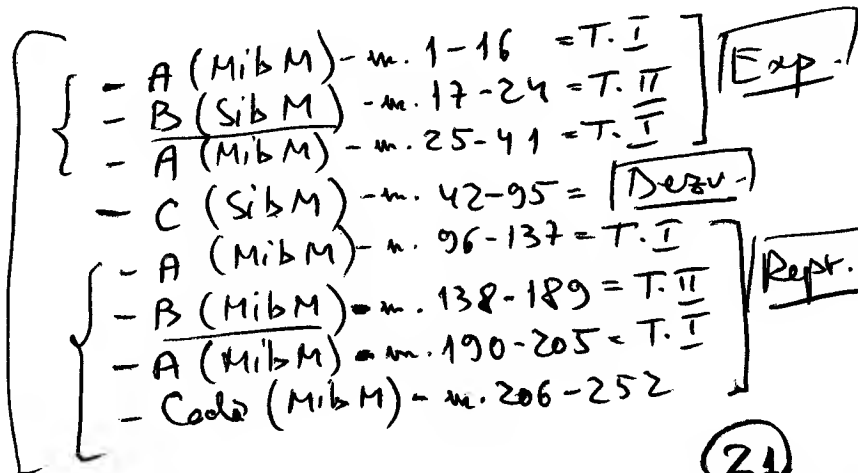 - A (Mib M) - m. 1-16 = T. I
- B (Sib M) - m. 17-24 = T. II
- A (Mib M) - m. 25-41 = T. I
Exp.
- C (Sib M) - m. 42-95 = Dezv.
- A (Mib M) - m. 96-137 = T. I
- B (Mib M) - m. 138-189 = T. II
- A (Mib M) - m. 190-205 = T. I
- Coda (Mib M) - m. 206-252
Repr.
21